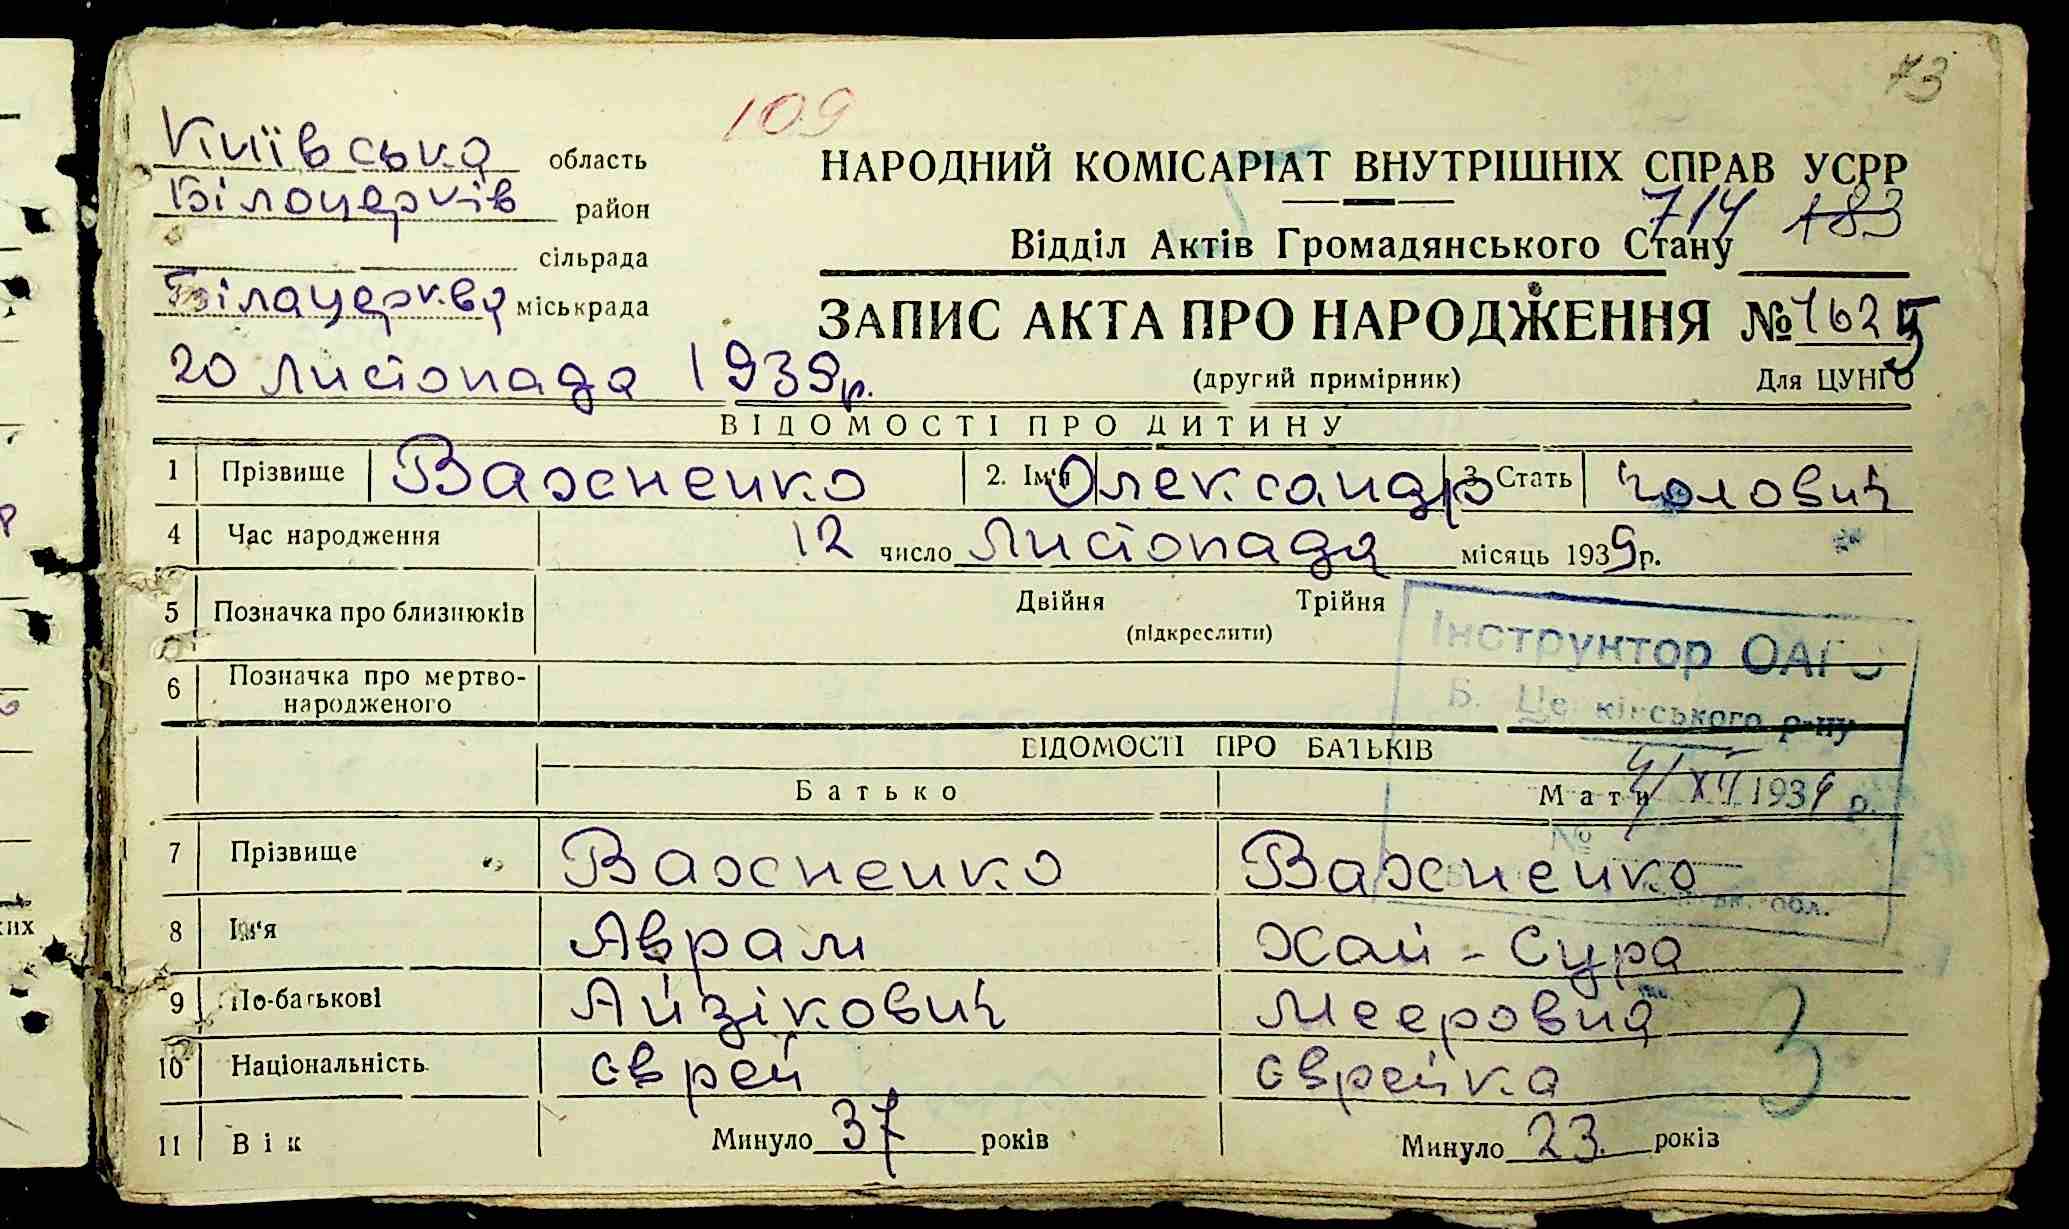 73
109
Київська область
Білоцерків район
сільрада
Білацерква міськрада
20 листопада 1939р.
НАРОДНИЙ КОМІСАРІАТ ВНУТРІШНІХ СПРАВ УСРР
714 183
Відділ Актів Громадянського Стану
ЗАПИС АКТА ПРО НАРОДЖЕННЯ № 1625
(другий примірник) Для ЦУНГО
ВІДОМОСТІ ПРО ДИТИНУ
1 ПрізвищеВажненко 2. Ім'я Олександр 3. Стать чолович
4 Час народження 12 число листопада місяць 1939р.
5 Позначка про близнюків Двійня Трійня
(підкреслити)
6 Позначка про мертво-
народженого
Інструктор ОАГС
Б. Церківського р-ну
ВІДОМОСТІ ПРО БАТЬКІВ
Батько Мати
4/XII 1939 р.
№
7 Прізвище Важненко Важненко
8 Ім'я Аврам Хай-Сура
обл.
9 По-батькові Айзікович Мееровна
10 Національність єврей єврейка
3
11 Вік Минуло 37 років Минуло 23 років